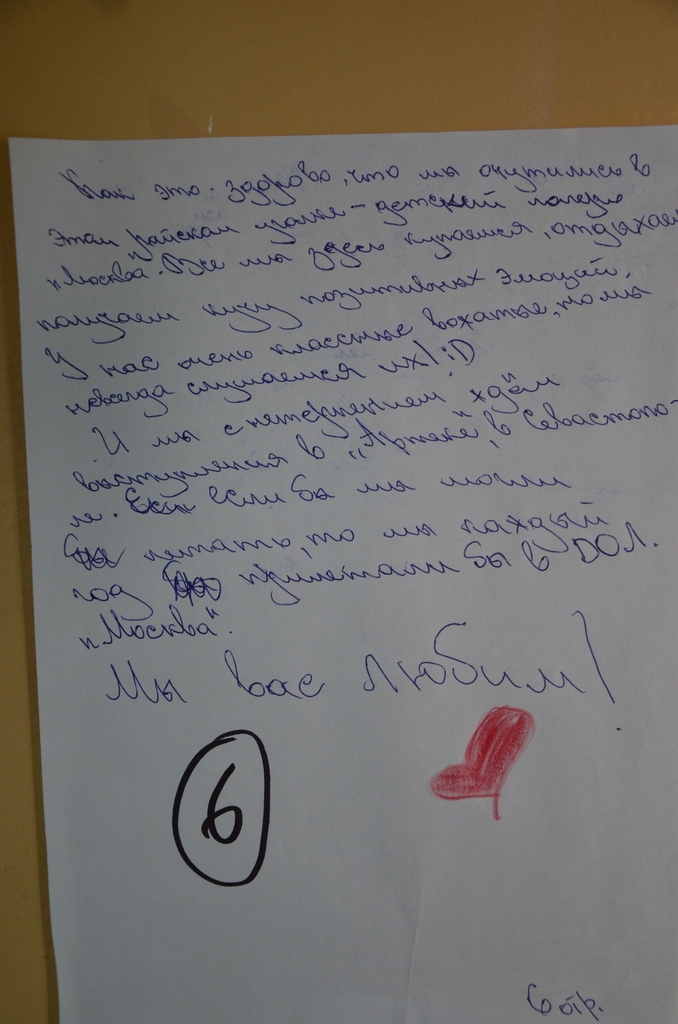 Как это здорово, что мы очутились в
этом райском уголке - детский лагерь
"Москва". Все мы здесь купаемся, отдыхаем
получаем кучу позитивных эмоций.
У нас очень классные вожатые, но мы
невсегда слушаемся их! :D
И мы с нетерпением ждём
выступления в "Артеке", в Севастопо-
ле. Если если бы мы могли
бы летать, то мы каждый
год бы прилетали бы в DОЛ.
"Москва".
Мы вас любим!
6
6 отр.